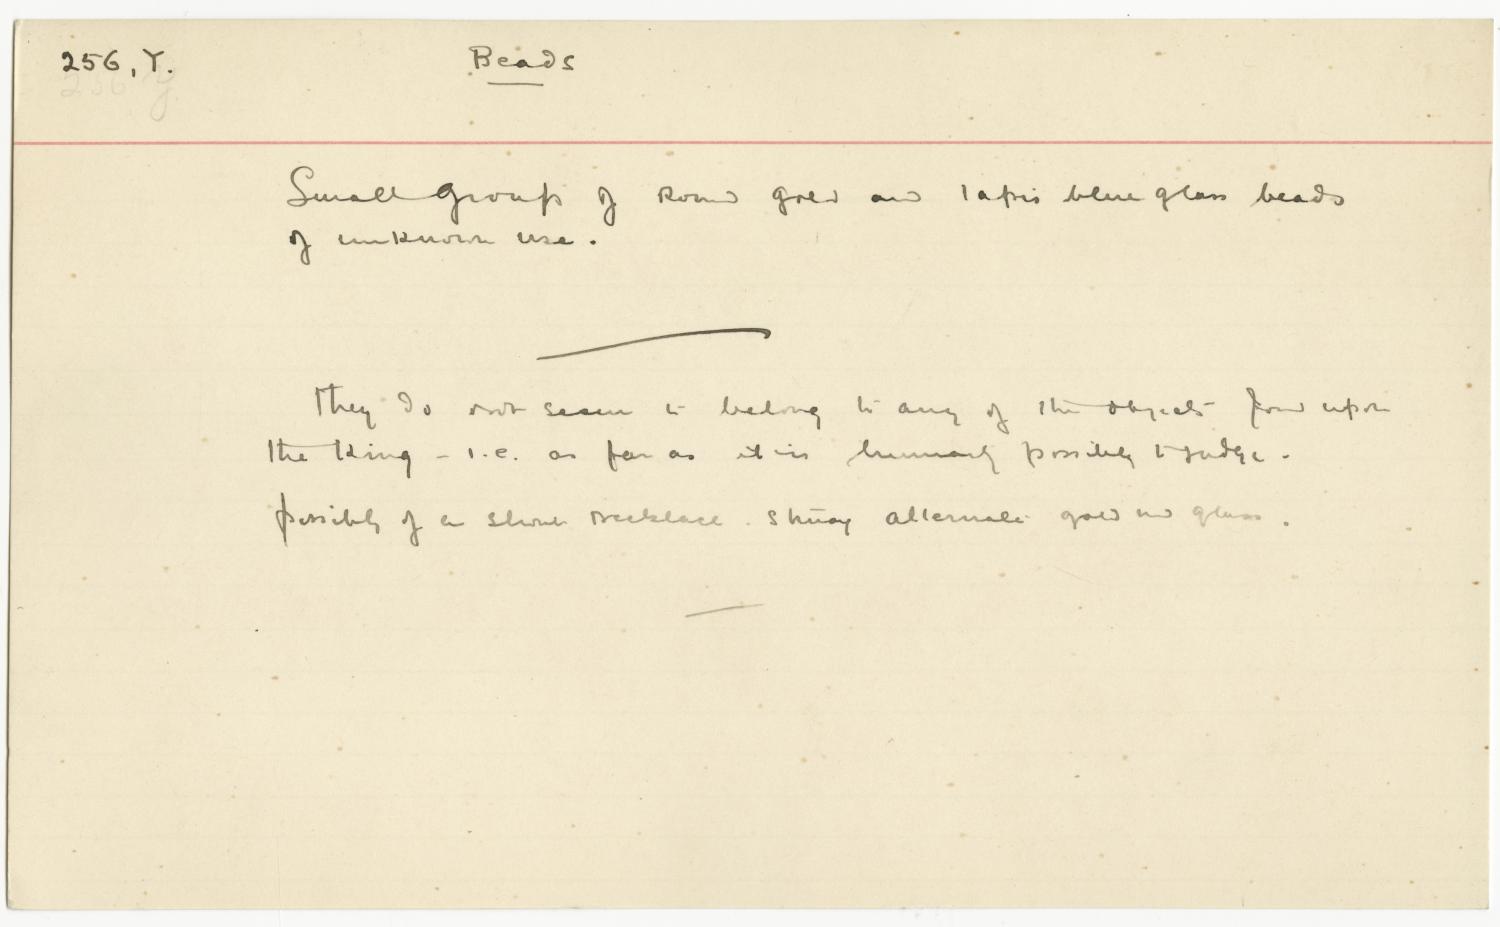 256, Y. Beads
256 y
Small group of round gold and lapis blue glass beads
of unknown use.
They do not seem to belong to any of the objects found upon
the King - i.e. as far as it is humanly possible to judge.
possibly of a short necklace. Strung alternate gold and glass.